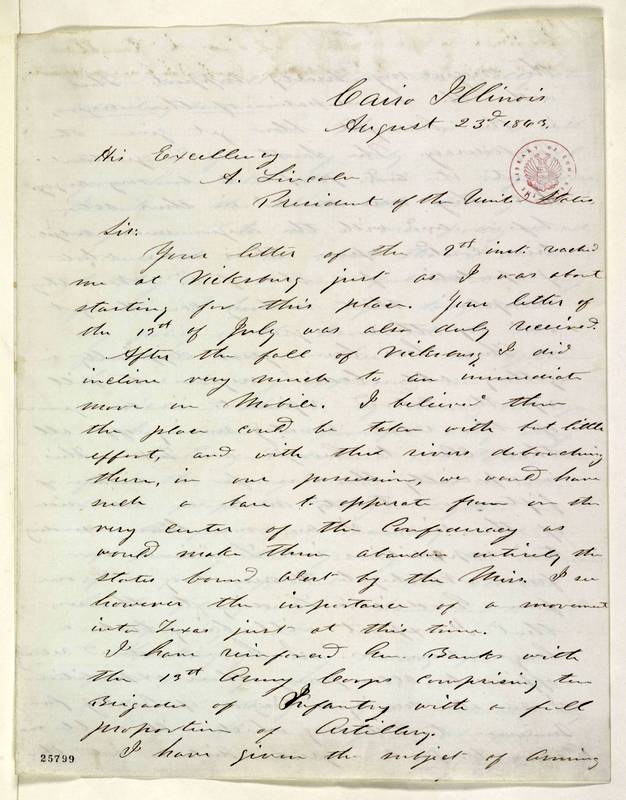 Cairo Illinois
August 23d 1863.
His Excellency
A. Lincoln
President of the United States
Sir:
Your letter of the 9th inst. reached
me at Vicksburg just as I was about
starting for this place. Your letter of
the 13th of July was also duly received.
After the fall of Vicksburg I did
incline very much to an immediate
move on Mobile. I believed then
the place could be taken with but little
effort, and with the rivers debouching
there, in our possession, we would have
such a base to opperate from on the
very center of the Confederacy as
would make them abandon entirely the
states bound West by the Miss. I see
however the importance of a movement
into Texas just at this time.
I have reinforced Gen. Banks with
the 13th Army Corps comprising ten
Brigades of Infantry with a full
proportion of Artillery.
I have given the subject of arming
LIBRARY OF CON
25799